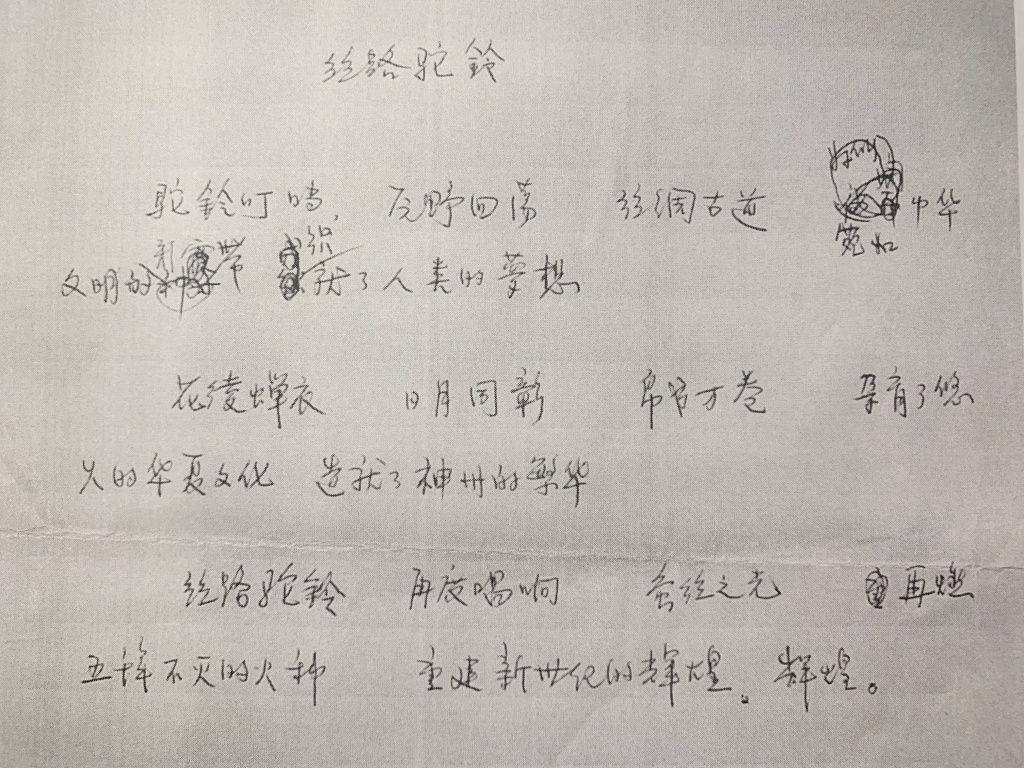 丝路驼铃
驼铃叮噹， 瓦野回荡 丝绸古道 宛如中华
文明的新带 织就了人类的夢想
花绫蝉衣 日月同彰 帛书万卷 孕育了悠
久的华夏文化 造就了神州的繁华
丝路驼铃 再度唱响 蚕丝之光 再燃
五千年不灭的火种 重建新世纪的辉煌。辉煌。